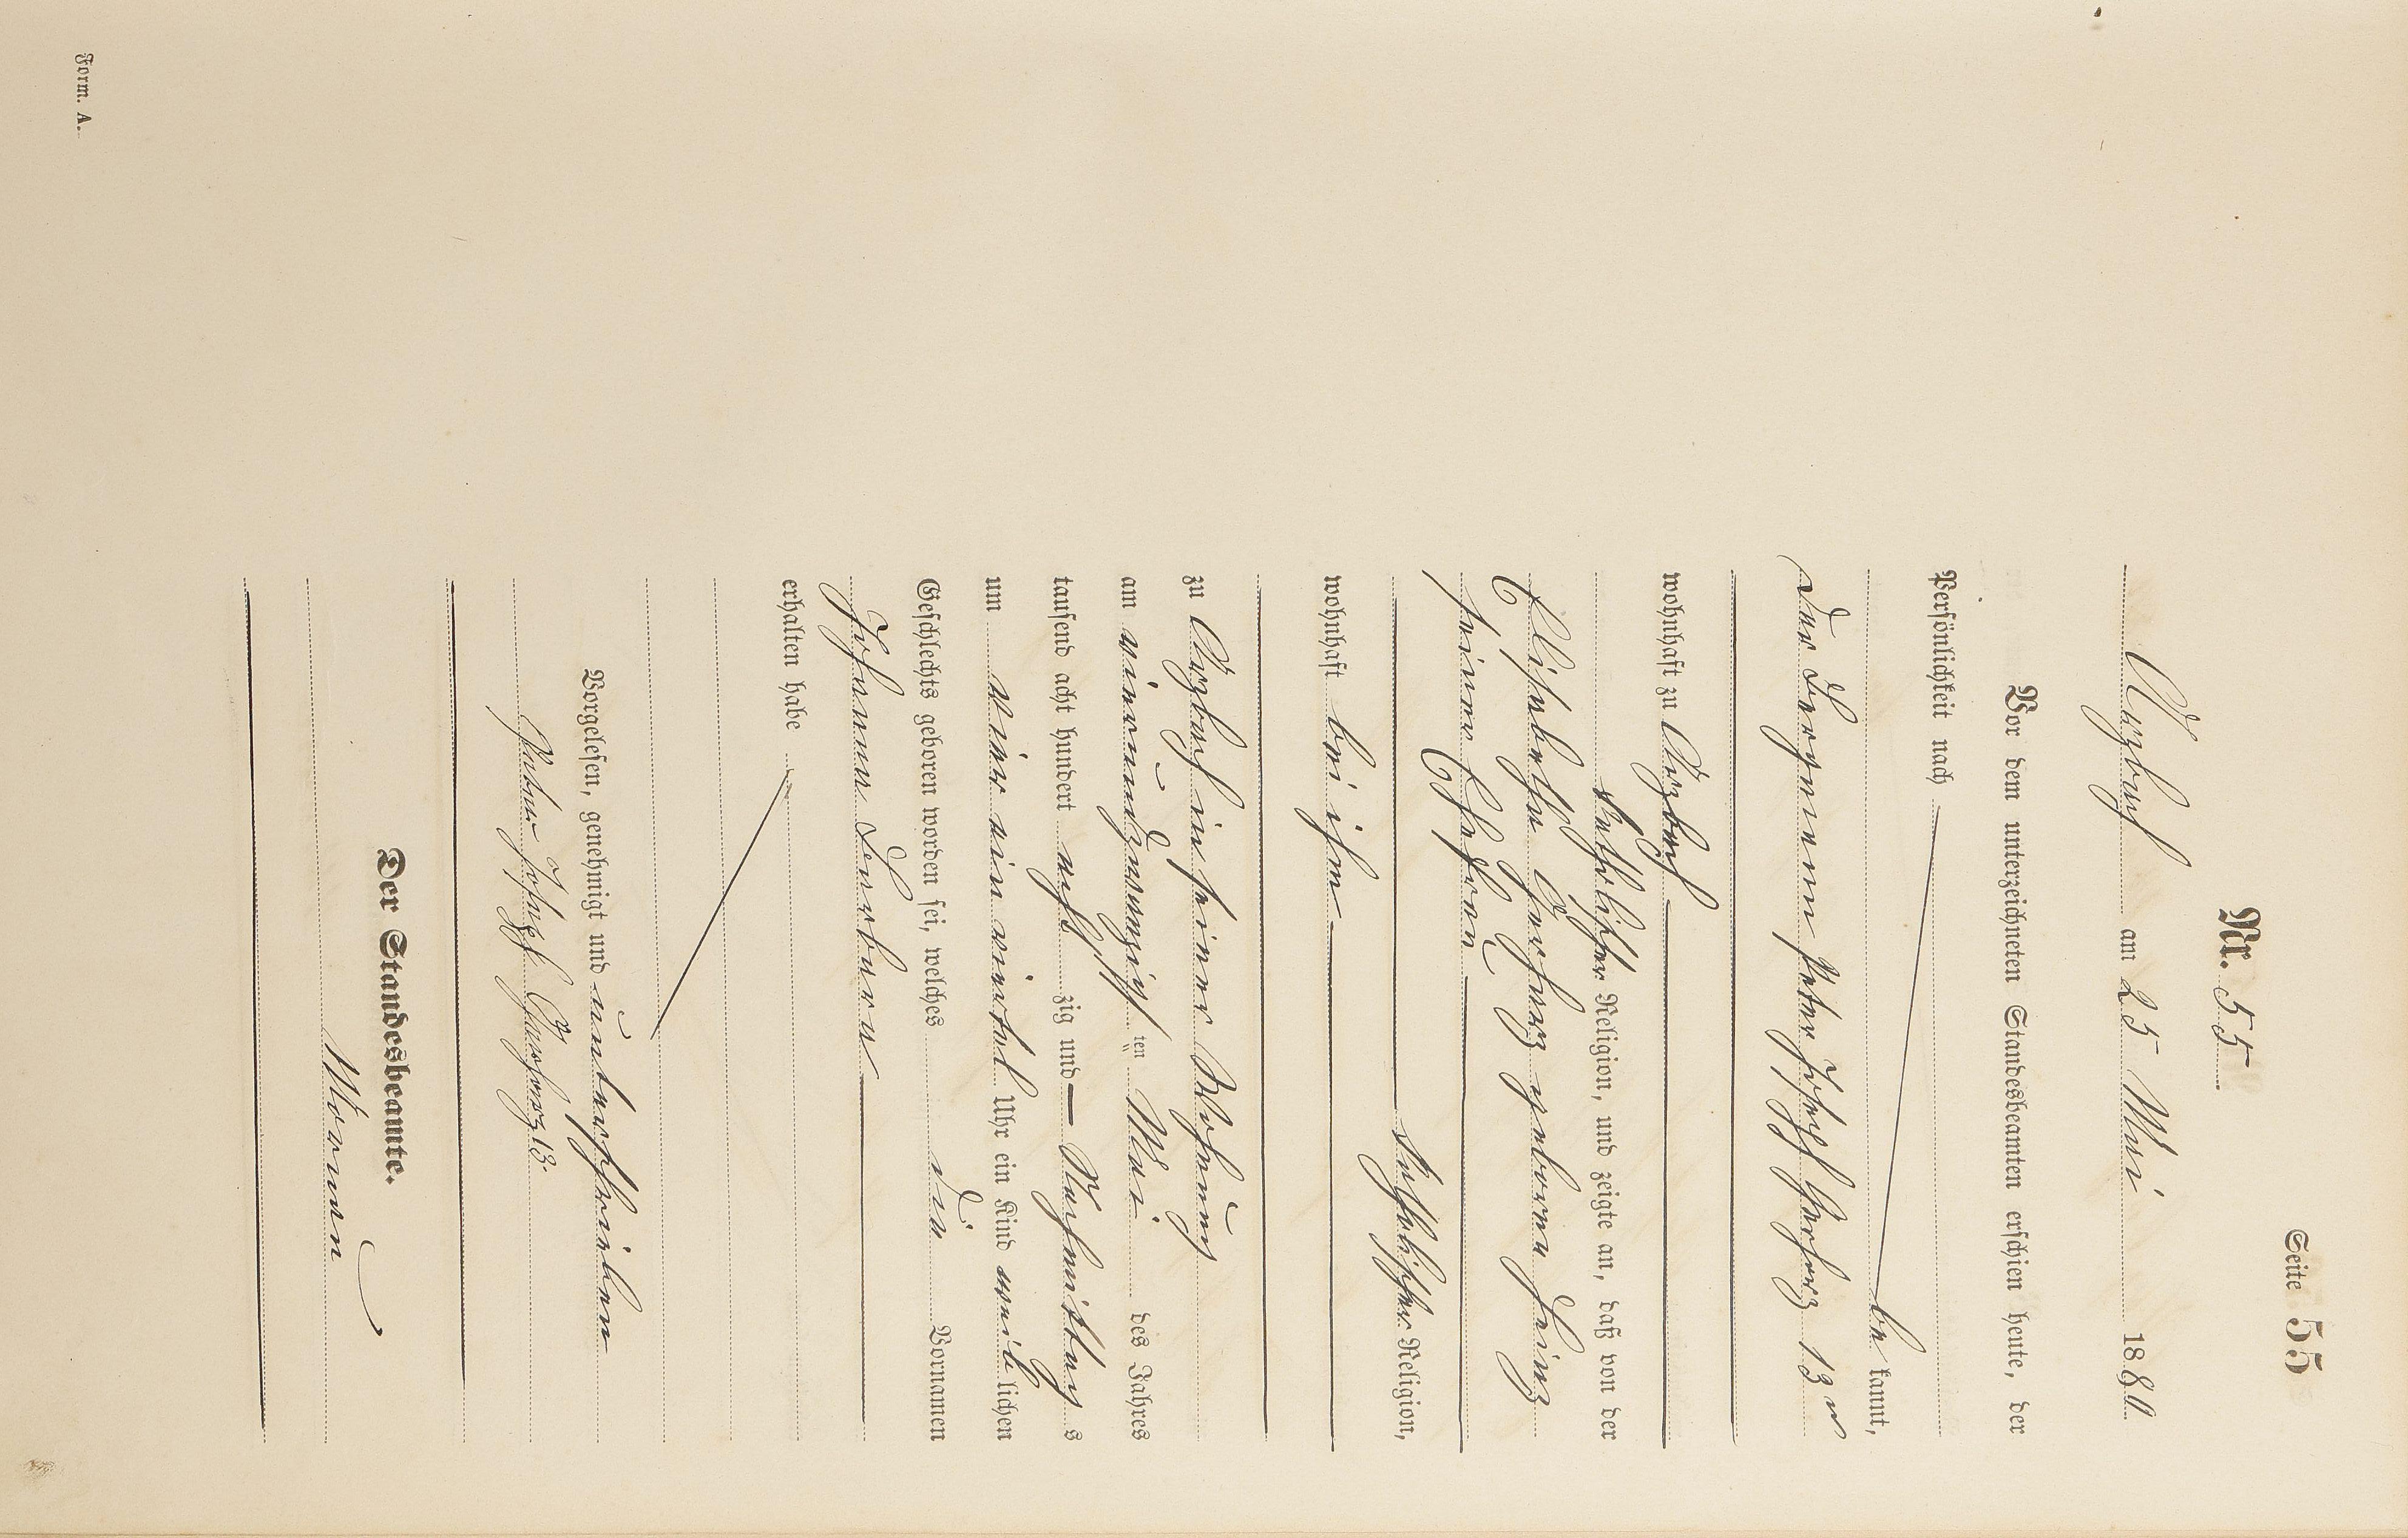 Seite 55
Nr. 55
Arzbach am 25 Mai 1880
Vor dem unterzeichneten Standesbeamten erschien heute, der
Persönlichkeit nach
be kannt,
der Bergmann Peter Joseph Gerharz 13r
wohnhaft zu Arzbach
katholischer Religion, und zeigte an, daß von der
Elisabetha Gerharz geborene Heinz
seiner Ehefrau
katholischer Religion,
wohnhaft bei ihm
zu Arzbach in seiner Wohnung
am vierundzwanzigsten ten Mai des Jahres
tausend acht hundert acht zig und Nachmittag s
um vier ein viertel Uhr ein Kind weib lichen
Geschlechts geboren worden sei, welches die Vornamen
Johanna Barbara
erhalten habe
Vorgelesen, genehmigt und unterschrieben
Peter Joseph Gerharz 13.
Der Standesbeamte.
Form. A.